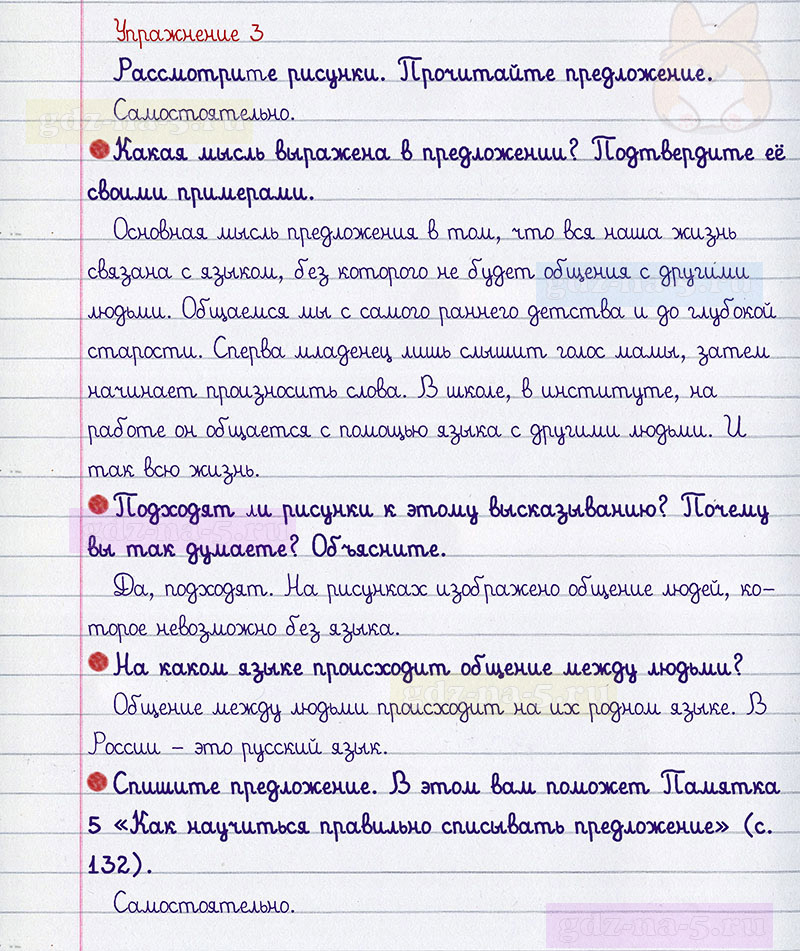 Упражнение 3
Рассмотрите рисунки. Прочитайте предложение.
Самостоятельно.
gdz-na-5.ru
Какая мысль выражена в предложении? Подтвердите её
своими примерами.
Основная мысль предложения в том, что вся наша жизнь
связана с языком, без которого не будет общения с другими
gdz-na-5.ru
людьми. Общаемся мы с самого раннего детства и до глубокой
старости. Сперва младенец лишь слышит голос мамы, затем
начинает произносить слова. В школе, в институте, на
работе он общается с помощью языка с другими людьми. И
так всю жизнь.
Подходят ли рисунки к этому высказыванию? Почему
gdz-na-5.ru
вы так думаете? Объясните.
Да, подходят. На рисунках изображено общение людей, ко-
торое невозможно без языка.
На каком языке происходит общение между людьми?
gdz-na-5.ru
Общение между людьми происходит на их родном языке. В
России – это русский язык.
Спишите предложение. В этом вам поможет Памятка
5 «Как научиться правильно списывать предложение» (с.
132).
Самостоятельно.
gdz-na-5.ru